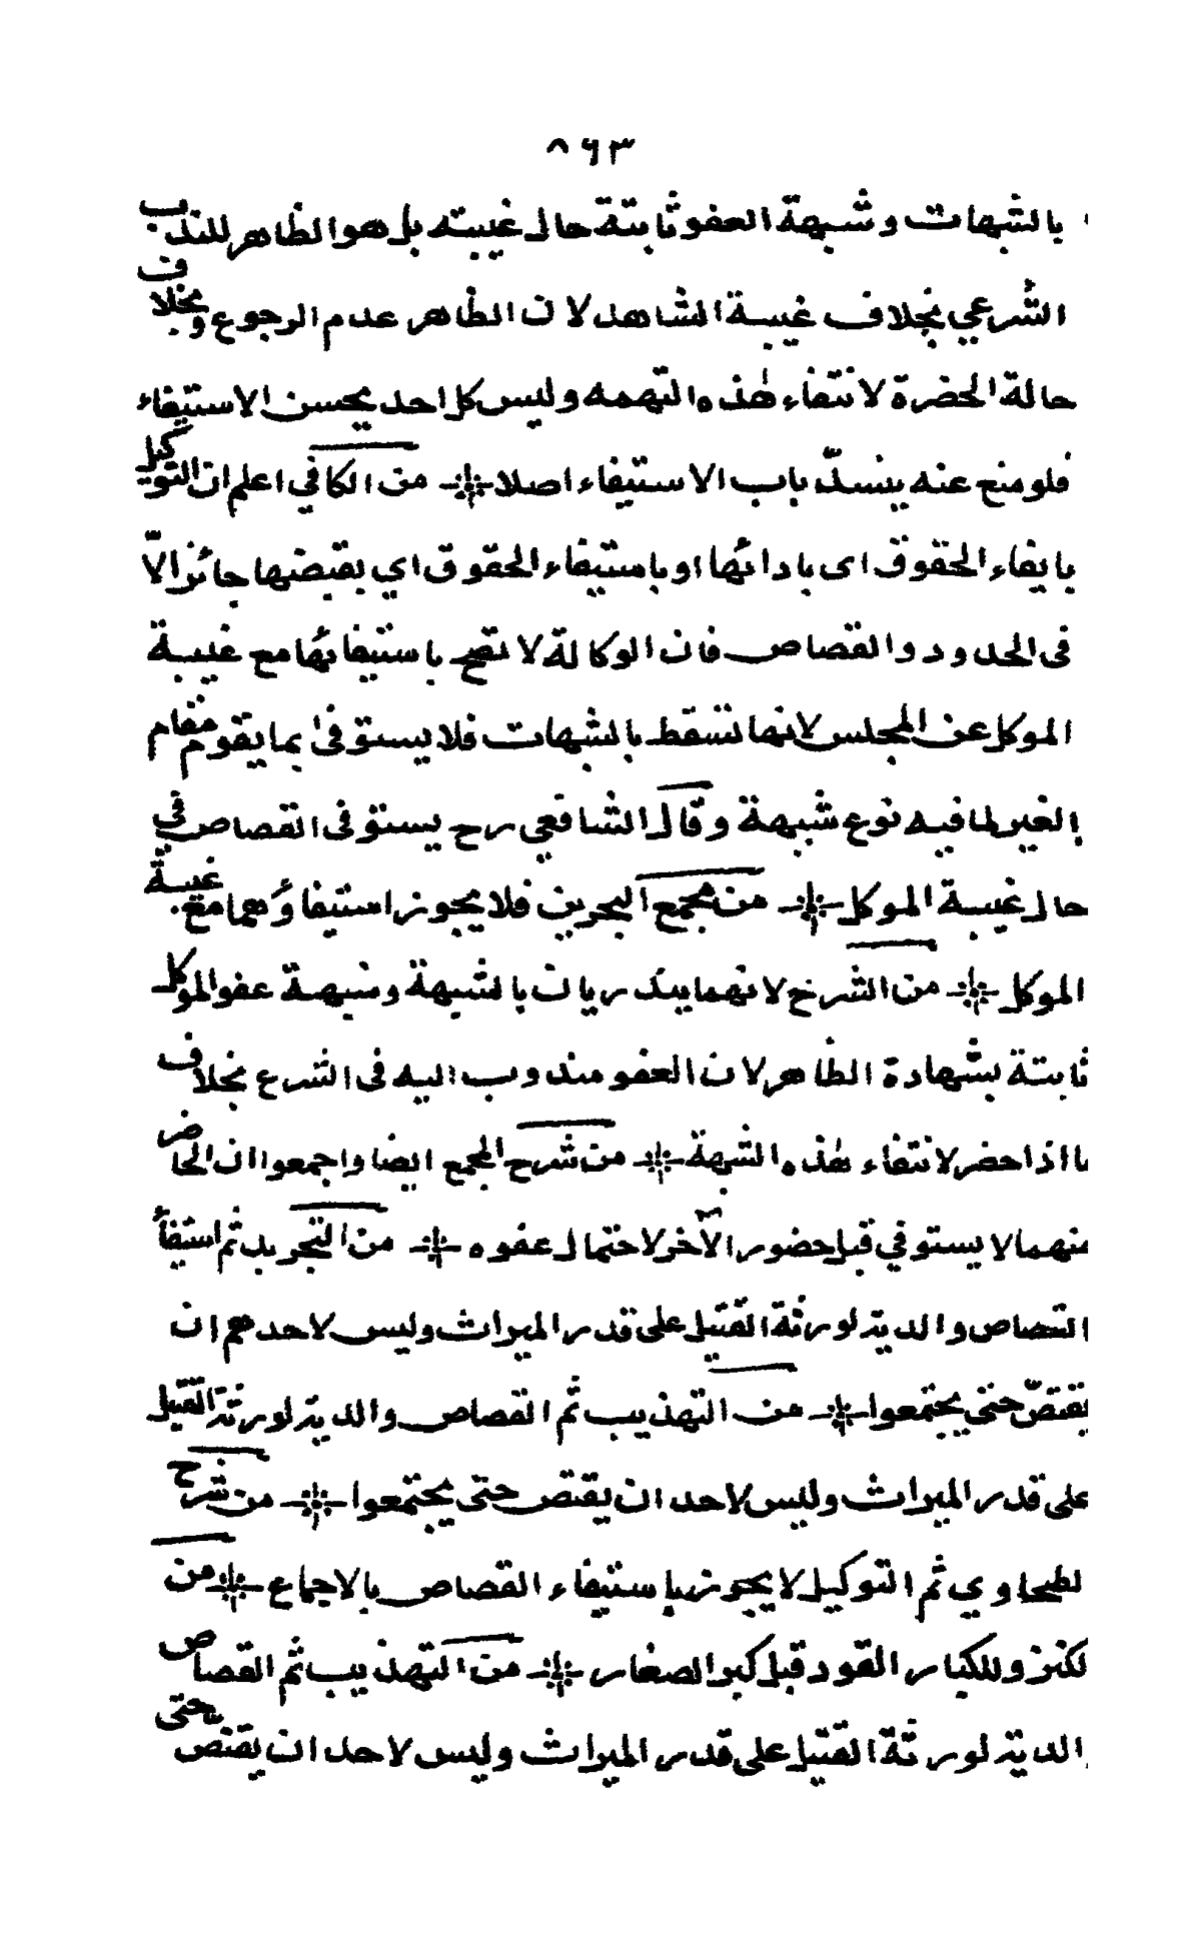 ٨٦٣
بالشبهات وشبهة العفو ثابتة حال غيبته بل هو الظاهر للندب
الشرعي بخلاف غيبة الشاهد لان الظاهر عدم الرجوع وبخلاف
حالة الحضرة لانتفاء هذه التهمه وليس كل احد يحسن الاستيفاء
فلو منع عنه ينسدّ باب الاستيفاء اصلا من الكافي اعلم ان التوكيل
بايفاء الحقوق اى بادائها او باستيفاء الحقوق اي بقبضها جائز الّا
فى الحدود والقصاص فان الوكالة لا تصح باستيفائها مع غيبة
الموكل عن المجلس لانها تسقط بالشبهات فلا يستوفى بما يقوم مقام
الغير لما فيه نوع شبهة وقال الشافعي رح يستوفى القصاص في
حال غيبة الموكل من مجمع البحرين فلا يجوز استيفاؤهما مع غيبة
الموكل من الشرح لانهما يندريان بالشبهة وشبهة عفو الموكل
ثابتة بشهادة الظاهر لان العفو مندوب اليه فى الشرع بخلاف
ما اذا حضر لانتفاء هذه الشبهة من شرح المجمع ايضا واجمعوا ان الحاضر
منهما لا يستوفي قبل حضور الآخر لاحتمال عفوه من التجريد ثم استيفأ
القصاص والدية لورثة القتيل على قدر الميراث وليس لاحدهم ان
يقتصّ حتى يجتمعوا من التهذيب ثم القصاص والدية لورثة القتيل
على قدر الميراث وليس لاحد ان يقتص حتى يجتمعوا من شرح
لطحاوي ثم التوكيل لا يجوز باستيفاء القصاص بالاجماع من
لكنز وللكبار القود قبل كبر الصغار من التهذيب ثم القصاص
والدية لورثة القتيل على قدر الميراث وليس لاحد ان يقتصّ حتى